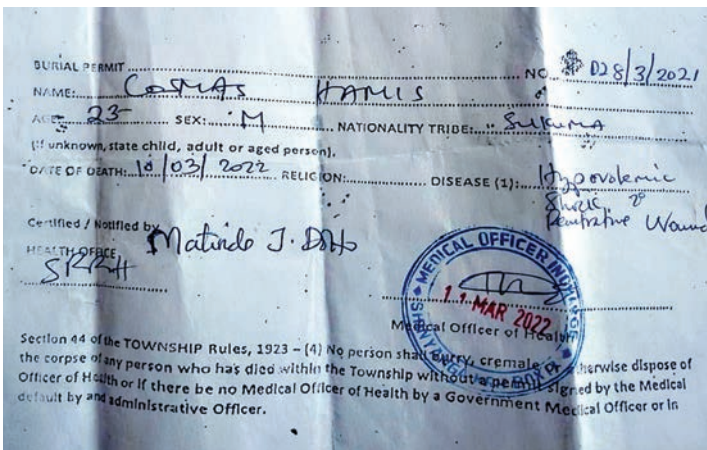 BURIAL PERMIT NO. D28/3/2021
NAME: COSMAS HAMIS
AGE 23 SEX: M NATIONALITY TRIBE: SUKUMA
(If unknown, state child, adult or aged person).
DATE OF DEATH: 10/03/2022 RELIGION: DISEASE (1): Hypovolemic
Shock 2°
Penitrative Wound
Certified / Notified by Matindo J.
HEALTH OFFICE
SRRH
MEDICAL OFFICER INCHARGE
11 MAR 2022
SHINYANGA
Medical Officer of Health
Section 44 of the TOWNSHIP Rules, 1923 – (4) No person shall burry, cremate otherwise dispose of
the corpse of any person who has died within the Township without a permit signed by the Medical
Officer of Health or if there be no Medical Officer of Health by a Government Medical Officer or in
default by and administrative Officer.